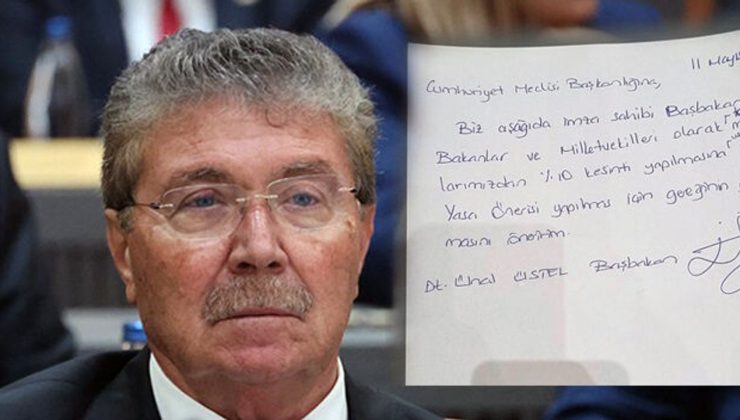 11 Mayıs
Cumhuriyet Meclisi Başkanlığına,
Biz aşağıda imza sahibi Başbakan
Bakanlar ve Milletvekilleri olarak
larımızdan %10 kesinti yapılmasına
Yasa Önerisi yapılması için gereğinin
masını öneririm.
Dt. Ünal ÜSTEL Başbakan